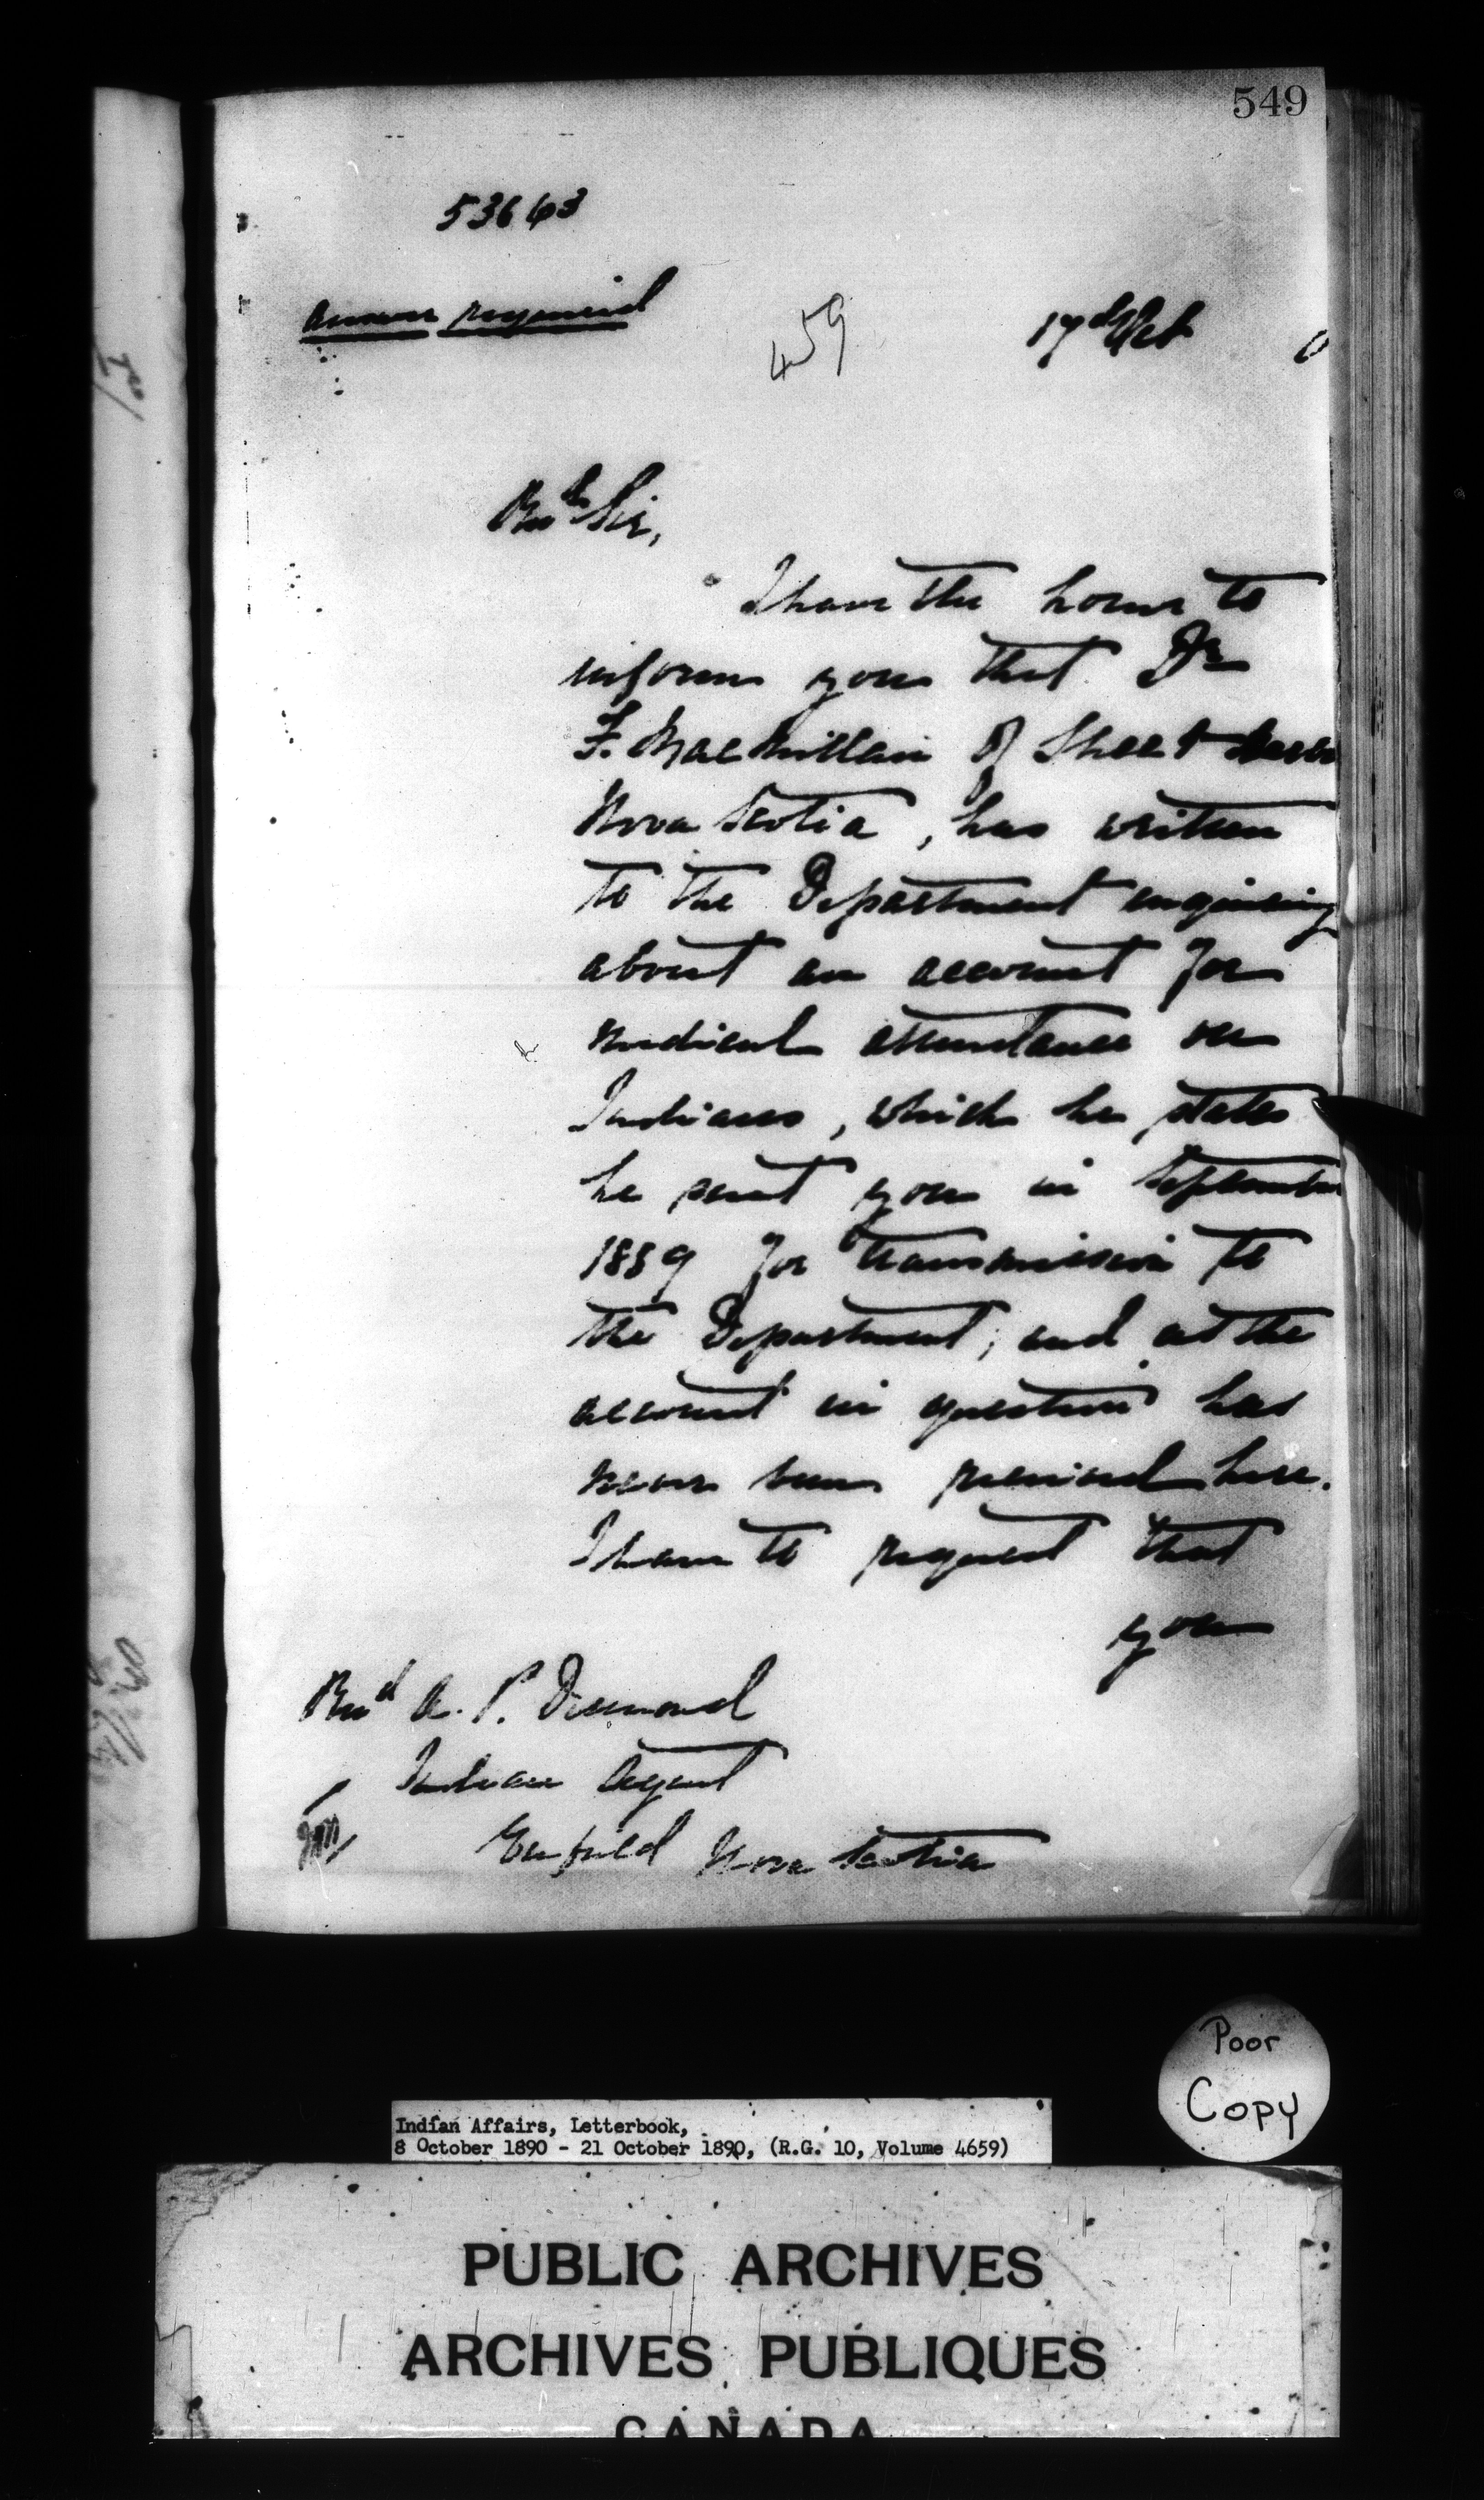 549
53663
Answer required
459
17th Oct 0
Revd Sir,
I have the honor to
inform you that Dr
F. Macmillan of Sheet
Nova Scotia, has written
to the Department enquiring
about an account for
medical attendance on
Indians, which he states
he sent you in September
1889 for transmission to
the Department; and as the
account in question has
never been received here.
I have to request that
you
Revd A. P. Desmond
Indian Agent
Enfield Nova Scotia
Poor
Copy
Indian Affairs, Letterbook,
8 October 1890 - 21 October 1890, (R.G. 10, Volume 4659)
PUBLIC ARCHIVES
ARCHIVES PUBLIQUES
CANADA